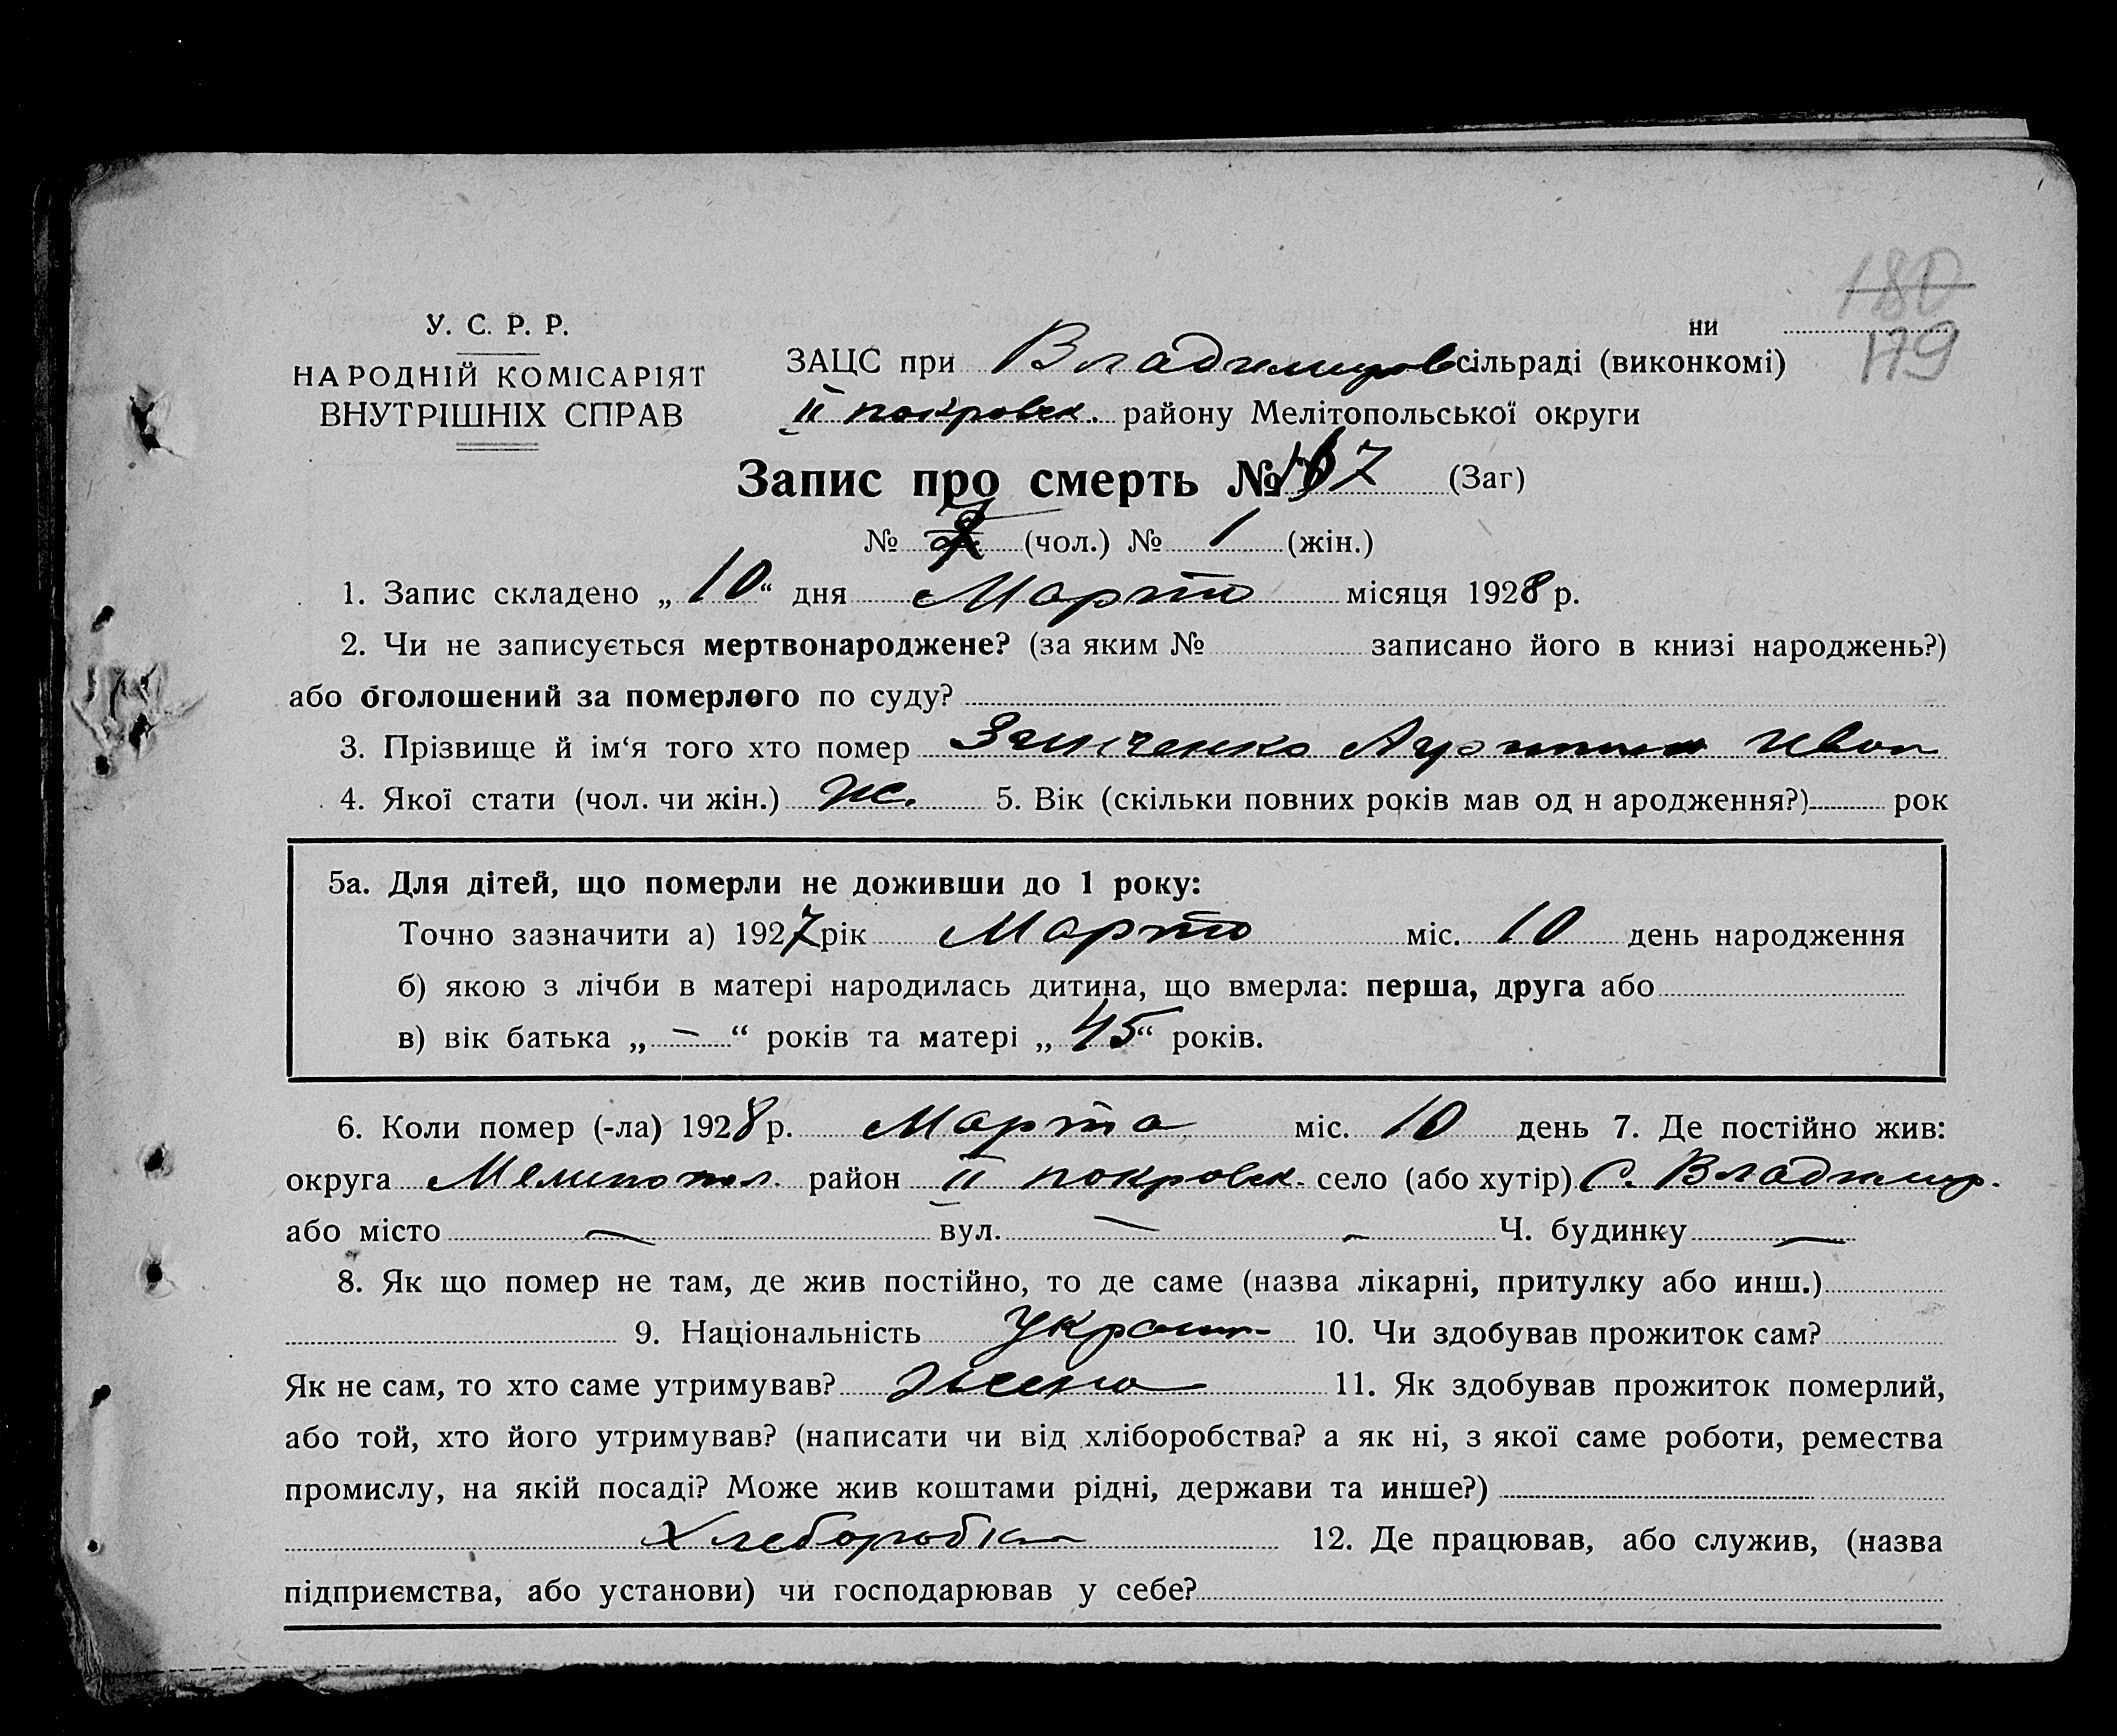 180
179
У. С. Р. Р.
НАРОДНІЙ КОМІСАРІЯТ
ВНУТРІШНІХ СПРАВ
ни
ЗАЦС при Владимиров сільраді (виконкомі)
II покровск. району Мелітопольської округи
Запис про смерть № 7 (Заг)
№ (чол.) № 1 (жін.)
1. Запис складено „ 10 “ дня Марта місяця 1928 р.
2. Чи не записується мертвонароджене? (за яким № записано його в книзі народжень?)
або оголошений за померлого по суду?
3. Прізвище й ім‘я того хто помер Иван
4. Якої стати (чол. чи жін.) Ж. 5. Вік (скільки повних років мав од н ародження?) рок
5а. Для дітей, що померли не доживши до 1 року:
Точно зазначити а) 1927 рік Марта міс. 10 день народження
б) якою з лічби в матері народилась дитина, що вмерла: перша, друга або
в) вік батька „ — “ років та матері „ 45 “ років.
6. Коли помер (-ла) 1928 р. Марта міс. 10 день 7. Де постійно жив:
округа Мелитопол. район II покровск. село (або хутір) С. Владимир.
або місто — вул. — — Ч. будинку —
8. Як що помер не там, де жив постійно, то де саме (назва лікарні, притулку або инш.)
9. Національність Украин- 10. Чи здобував прожиток сам?
Як не сам, то хто саме утримував? 11. Як здобував прожиток померлий,
або той, хто його утримував? (написати чи від хліборобства? а як ні, з якої саме роботи, ремества
промислу, на якій посаді? Може жив коштами рідні, держави та инше?)
Хлеборобка 12. Де працював, або служив, (назва
підприємства, або установи) чи господарював у себе?